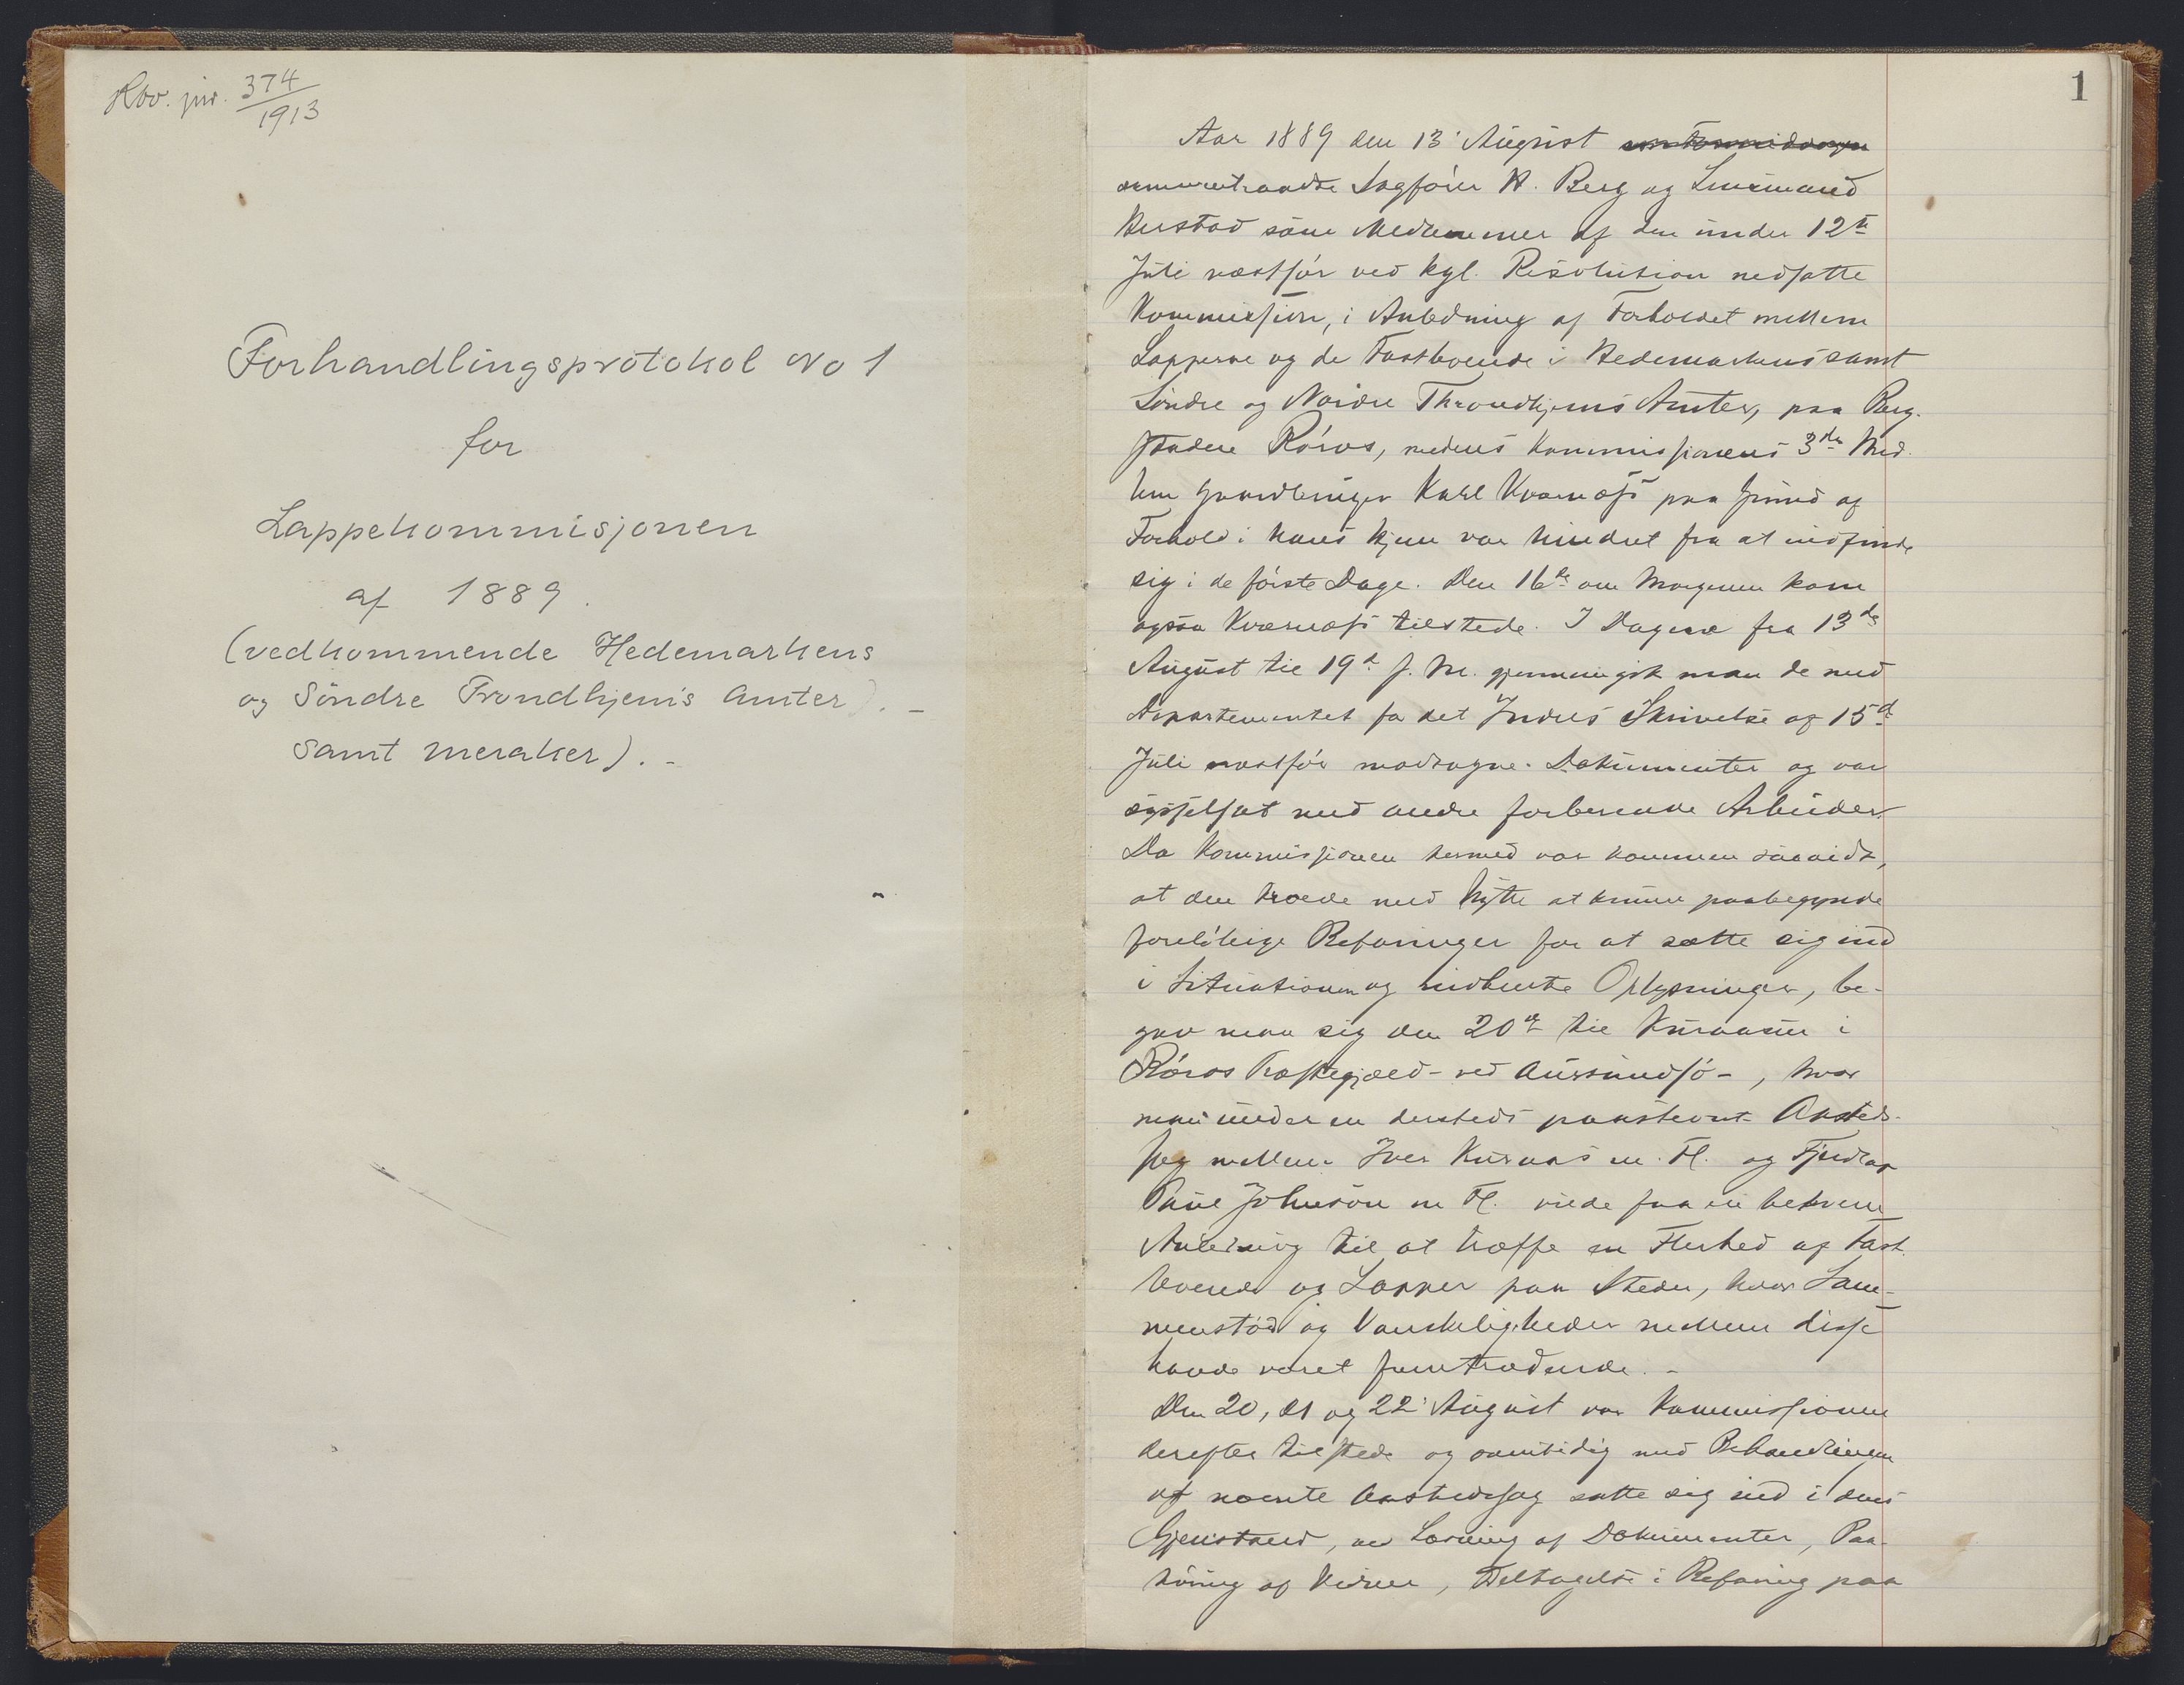 Rev. jnr. 374
1913
Forhandlingsprotokol No 1
for
Lappekommisjonen
af 1889.
(vedkommende Hedemarkens
og Söndre Trondhjems Amter). -
samt Meraker). -
1
Aar 1889 den 13' August
sammentraadte Sagfører H. Berg og Lensmand
Herstad som Medlemmer af den under 12te
Juli næstfør ved kgl. Resolution nedsatte
Kommission, i Anledning af Forholdet mellem
Lapperne og de Fastboende i Hedemarkens samt
Søndre og Nordre Throndhjems Amter, paa Berg-
staden Røros, medens Kommissionens 3die Med-
lem Gaardbruger Karl Kværnæss paa Grund af
Forhold i hans Hjem var hindret fra at indfinde
sig i de første Dage. Den 16de om Morgenen kom
ogsaa Kværnæss tilstede. I Dagene fra 13de
August til 19de s. M. gjennemgik man de med
Departementet for det Indres Skrivelse af 15de
Juli næstfør modtagne Dokumenter og var
sysselsat med andre forberedende Arbeider.
Da Kommissionen hermed var kommen saavidt,
at den troede med Nytte at kunne paabegynde
foreløbige Befaringer for at sætte sig ind
i Situationen og indhente Oplysninger, be-
gav man sig den 20de til Kuraasen i
Røros Præstegjæld - ved Aursundsjø -, hvor
man under en dersteds paastevnt Aasteds-
sag mellem Iver Kuraas m. Fl. og Fjeldlap
Paul Johnson m Fl. vilde faa en bekvem
Anledning til at træffe en Flerhed af Fast-
boende og Lapper paa Steder, hvor Sam-
menstød og Vanskeligheder mellem disse
havde været fremtrædende. -
Den 20, 21 og 22' August var Kommissionen
derefter tilstede og samtidig med Behandlingen
af nævnte Aastedssag satte sig ind i dens
Gjenstand, ved Læsning af Dokumenter, Paa-
høring af Vidner, Deltagelse i Befaring paa